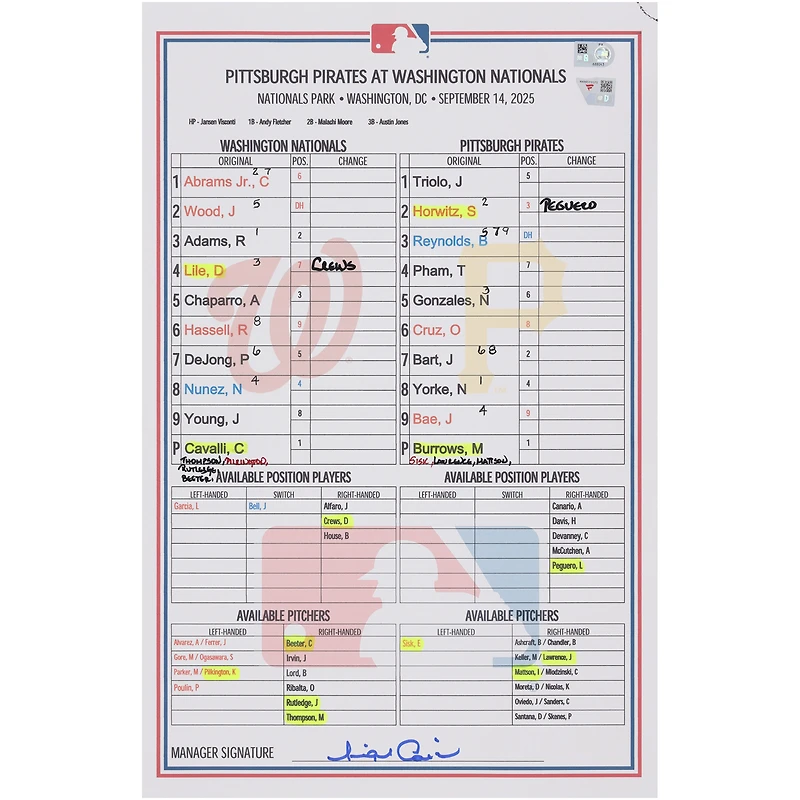 PITTSBURGH PIRATES AT WASHINGTON NATIONALS
NATIONALS PARK • WASHINGTON, DC • SEPTEMBER 14, 2025
HP - Jansen Visconti 1B - Andy Fletcher 2B - Malachi Moore 3B - Austin Jones
WASHINGTON NATIONALS
ORIGINAL POS. CHANGE
1 Abrams Jr., C 2 7 6
2 Wood, J 5 DH
3 Adams, R 1 2
4 Lile, D 3 7 CREWS
5 Chaparro, A 3
6 Hassell, R 8 9
7 DeJong, P 6 5
8 Nunez, N 4 4
9 Young, J 8
P Cavalli, C 1
THOMPSON, PILKINGTON,
RUTLEDGE,
BEETER,
PITTSBURGH PIRATES
ORIGINAL POS. CHANGE
1 Triolo, J 5
2 Horwitz, S 2 3 PEGUERO
3 Reynolds, B 5 7 9 DH
4 Pham, T 7
5 Gonzales, N 3 6
6 Cruz, O 8
7 Bart, J 6 8 2
8 Yorke, N 1 4
9 Bae, J 4 9
P Burrows, M 1
SISK, LAWRENCE, MATTSON,
AVAILABLE POSITION PLAYERS
LEFT-HANDED SWITCH RIGHT-HANDED
Garcia, L Bell, J Alfaro, J
Crews, D
House, B
AVAILABLE POSITION PLAYERS
LEFT-HANDED SWITCH RIGHT-HANDED
Canario, A
Davis, H
Devanney, C
McCutchen, A
Peguero, L
AVAILABLE PITCHERS
LEFT-HANDED RIGHT-HANDED
Alvarez, A / Ferrer, J Beeter, C
Gore, M / Ogasawara, S Irvin, J
Parker, M / Pilkington, K Lord, B
Poulin, P Ribalta, O
Rutledge, J
Thompson, M
AVAILABLE PITCHERS
LEFT-HANDED RIGHT-HANDED
Sisk, E Ashcraft, B / Chandler, B
Keller, M / Lawrence, J
Mattson, I / Mlodzinski, C
Moreta, D / Nicolas, K
Oviedo, J / Sanders, C
Santana, D / Skenes, P
MANAGER SIGNATURE